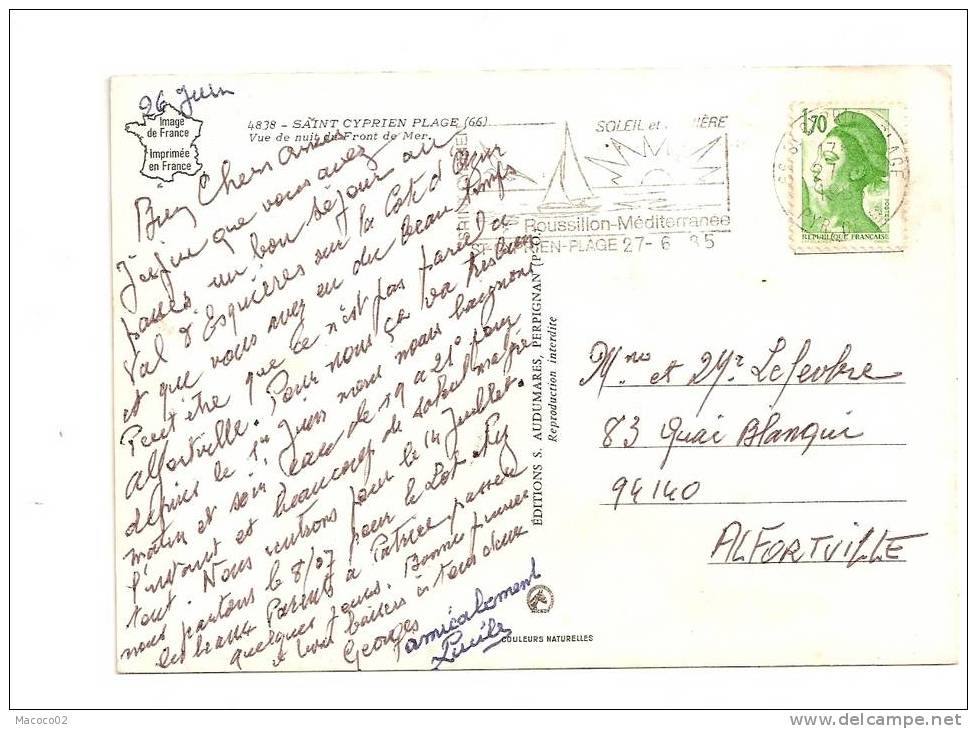 26 Juin
Image
de France
Imprimée
en France
4838 - SAINT CYPRIEN PLAGE (66)
Vue de nuit du Front de Mer.
Bien Chers Amis
J'espère que vous avez
passé un bon séjour au
Val d'Esquières sur la Côte d'Azur
et que vous avez eu du beau temps
Peut être que ce n'est pas pareil à
Alfortville. Pour nous ça va très bien
depuis le 1er Juin nous nous baignons
matin et soir eau de 19 à 21° pour
l'instant et beaucoup de soleil malgré
tout. Nous rentrons pour le 14 Juillet.
nous partons le 8/07 pour le Lot
les beaux Parents à Patrice passer
quelques jours. Bonne
baisers à tous deux
Georges
amicalement
Lucile
ÉDITIONS S. AUDUMARES, PERPIGNAN
Reproduction interdite
COULEURS NATURELLES
SOLEIL et
Roussillon-Méditerranée
ST-CYPRIEN-PLAGE 27-6 85
1,70
REPUBLIQUE FRANÇAISE
Mme et Mr Lefevbre
83 Quai Blanqui
94140
ALFORTVILLE
Macoco02
delcampe.net